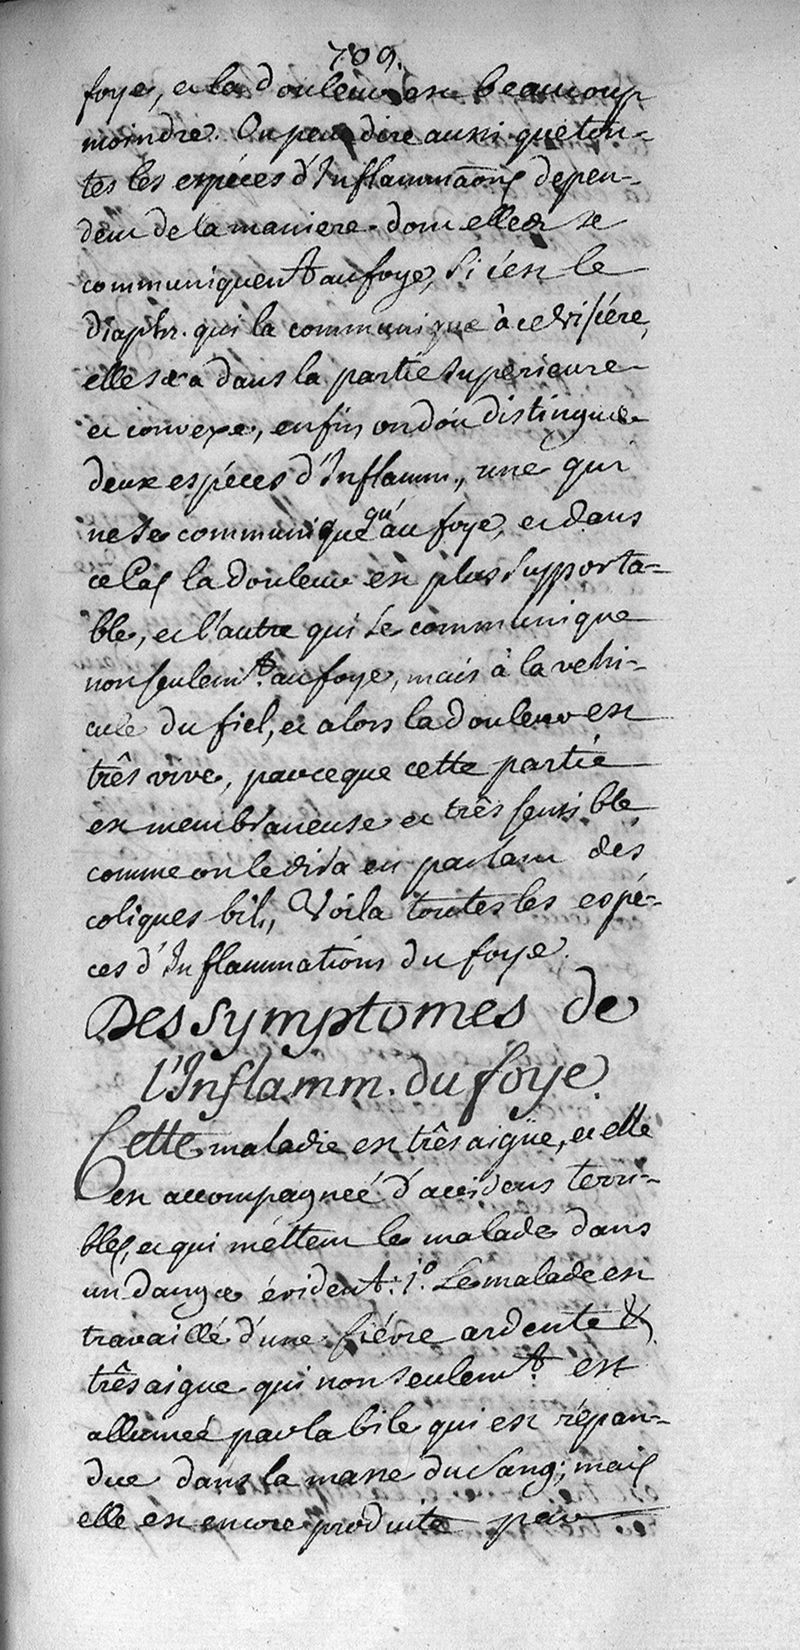 709.
foye, et la douleur est beaucoup
moindre. On peut dire aussi que tou-
tes les espéces d'Inflammaõns depen-
dent de la maniere dont elles se
communiquent au foye, Si c'est le
diaphr. qui la communique à ce viscére,
elle sera dans la partie superieure
et convexe, enfin on doit distinguer
deux espéces d'Inflamm., une qui
ne se communique qu'au foye, et dans
ce Cas la douleur est plus supporta-
ble, et l'autre qui se communique
non seulemt. au foye, mais à la vehi-
cule du fiel, et alors la douleur est
três vive, parceque cette partie
est membraneuse et três sensible,
comme on le dira en parlant des
coliques bil., Voila toutes les espé-
ces d'Inflammations du foye.
Des Symptomes de
l'Inflamm. du foye.
Cette maladie est três aigüe, et elle
est accompagneé d'accidens terri-
bles, et qui méttent le malade dans
un danger évident: 1º. Le malade est
travaillé d'une fiévre ardente &
três aigue qui non seulemt. est
allumeé par la bile qui est répan-
due dans la masse du Sang; mais
elle est encore produite par